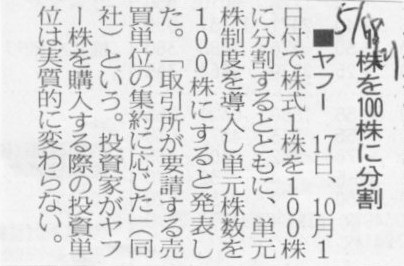 5/18
株を100株に分割
■ヤフー　17日、10月1
日付で株式1株を100株
に分割するとともに、単元
株制度を導入し単元株数を
100株にすると発表し
た。「取引所が要請する売
買単位の集約に応じた」(同
社)という。投資家がヤフ
ー株を購入する際の投資単
位は実質的に変わらない。